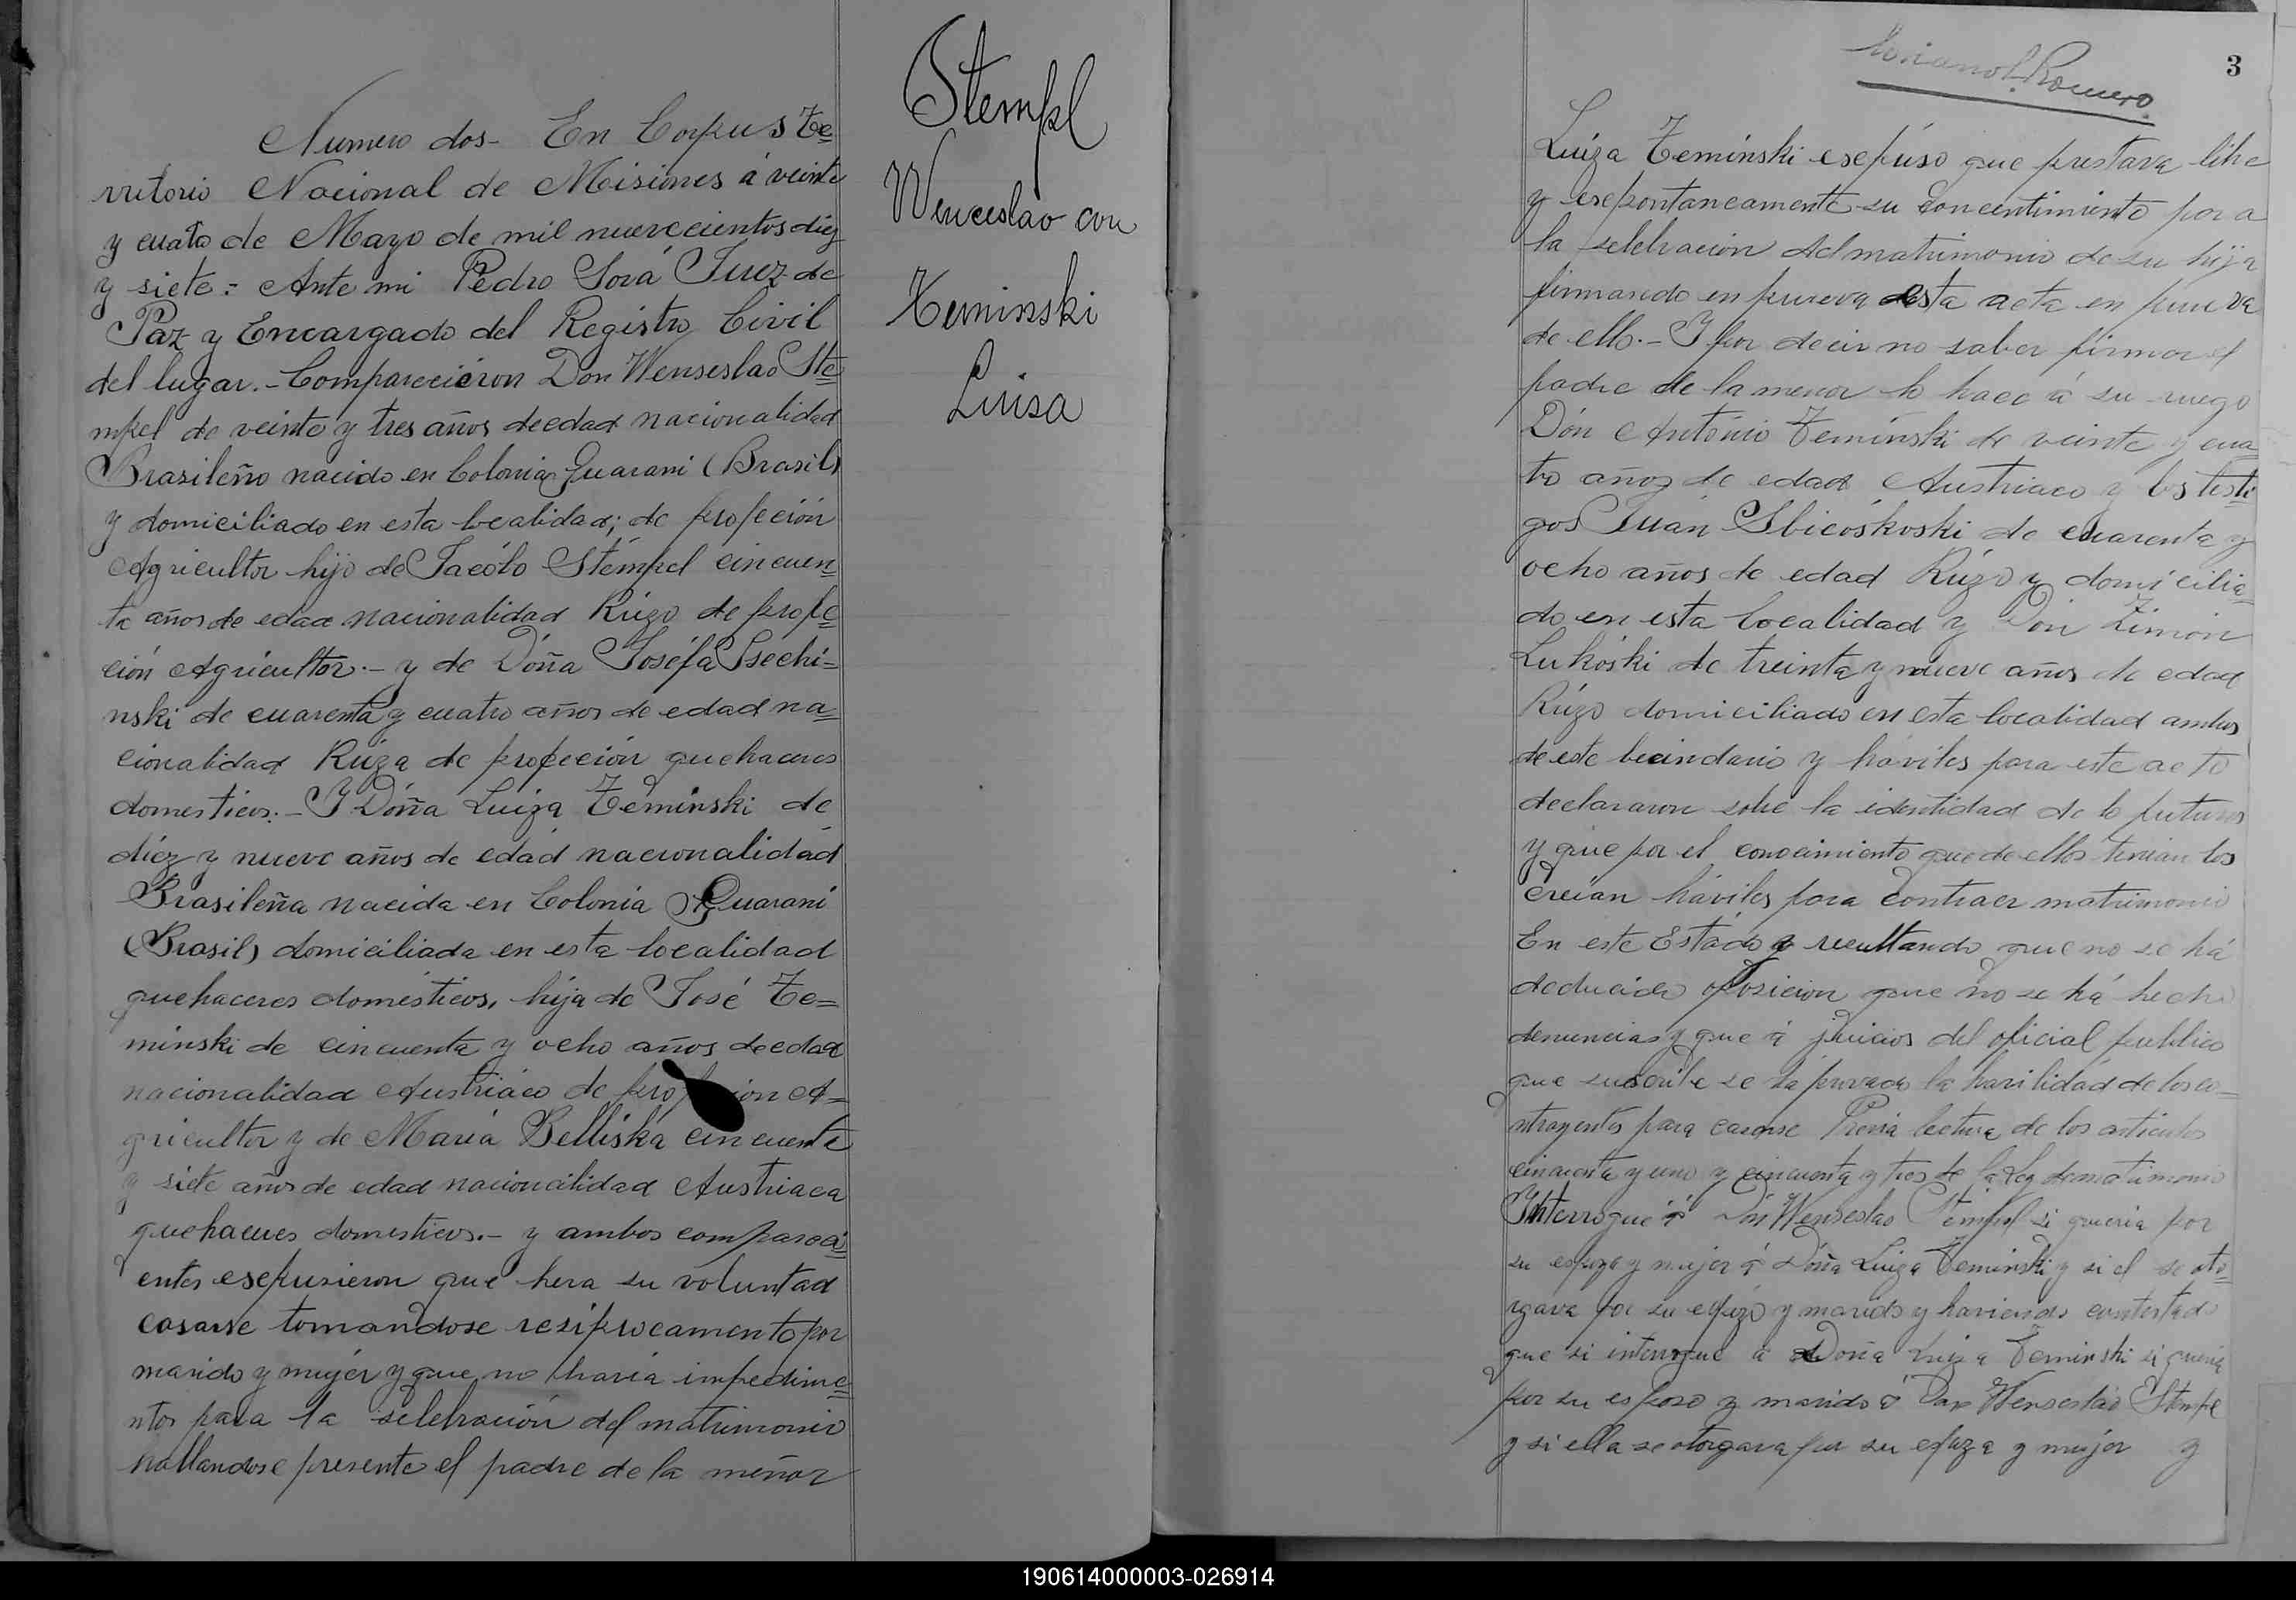 Numero dos- En Corpus Te=
rritorio Nacional de Misiones á veinte
y cuato de Mayo de mil nuevecientos diez
y siete:= Ante mi Pedro Sorá Juez de
Paz y Encargado del Registro Civil
del lugar.- Comparecieron Don Wenseslao Ste=
mpel de veinte y tres años de edad nacionalidad
Brasileño nacido en Colonia Guarani (Brasil)
y domiciliado en esta localidad; de profeción
Agricultor hijo de Jacóbo Stémpel cincuen=
ta años de edad nacionalidad Rúzo de profe=
ción Agricultor.- y de Dóña Joséfa
nski de cuarenta y cuatro años de edad na=
cionalidad Rúza de profeción quehaceres
domesticos.- I Dóña Luiza Teminski de
diéz y nueve años de edad nacionalidad
Brasileña nacida en Colonia Guarani
(Brasil) domiciliada en esta localidad
quehaceres domésticos, hija de José Te=
minski de cincuenta y ocho años de edad
nacionalidad Austriáco de profesion A=
gricultor y de Maria Belliska cincuenta
y siete años de edad nacionalidad Austriaca
quehaceres domesticos.- y ambos compareci=
entes esepusieron que hera su voluntad
casarse tomandose resiprocamente por
marido y mujér y que no havia impedime=
ntos para la selebración del matrimonio
hallandose presente el padre de la menor
Stempl
Wenceslao con
Teminski
Luisa
Romero
3
Luiza Teminski esepúso que prestava libe
y esepontaneamente su concentimiento para
la selebracion del matrimonio de su hija
firmando en prueva desta acta en prueva
de ello.- I por decir no saber firmar el
padre de la menor lo hace á su ruego
Dón António Teminski de veinte y cua=
tro años de edad Austriaco y los testi=
gos Juan Sbicóskoski de cuarenta y
ocho años de edad Rúzo y domicilia=
do en esta localidad y Don Zimón
Lukóski de treinta y nueve años de edad
Rúzo domiciliado en esta localidad ambos
de este becindario y háviles para este acto
declararon sobe la identidad de lo futuros
y que por el conocimiento que de ellos tenian los
creian háviles para contraer matrimonio
En este Estado y recultando que no se há
deducido oposicion que no se há hecho
denuncias y que á juicios del oficial publico
que suscribe se há provado la havilidád de los co=
ntrayentes para casarse Previa lectura de los articulos
cincuenta y uno y cincuenta y tres de la Ley de matrimonio
Interrogué á Dón Wenseslao Stémpel si queria por
su espoza y mujer á Dóña Luiza Teminski y si el se oto=
rgava por su espozo y marido y haviendo contestado
que si interrogué á Doña Luiza Teminski si queria
por su esposo y marido á Don Wenseslao Stempe
y si ella se otorgara por su espoza y mujer y
190614000003-026914